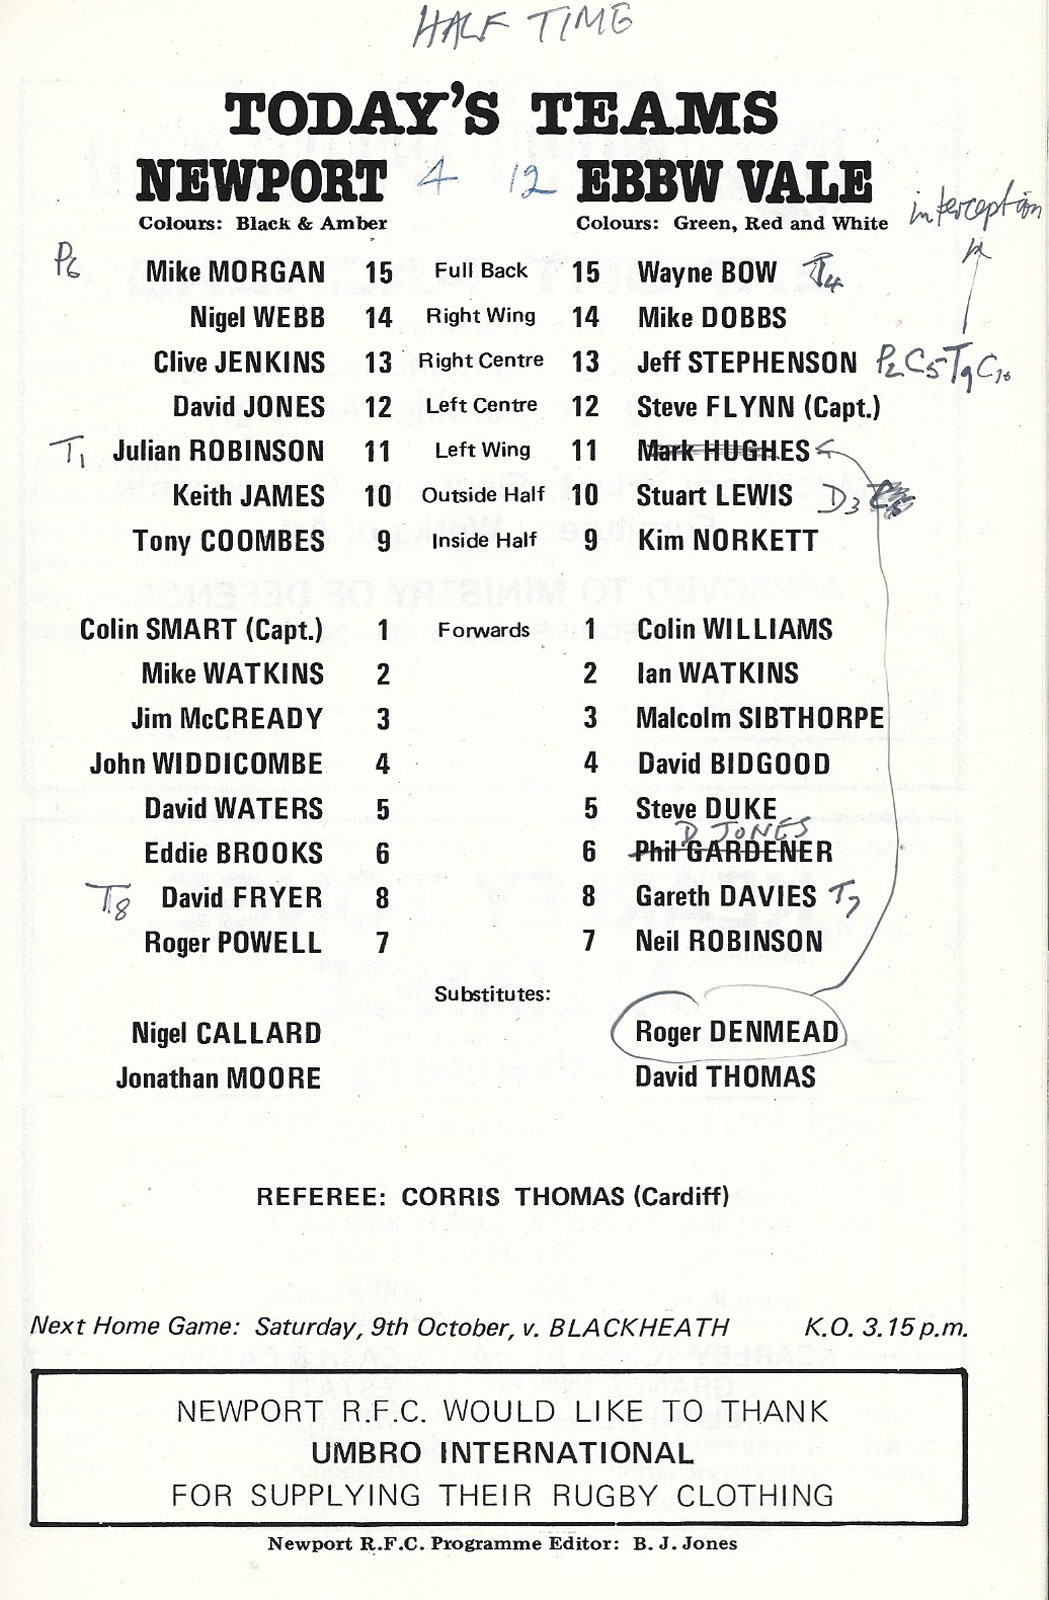 HALF TIME
TODAY'S TEAMS
NEWPORT 4 12 EBBW VALE
Colours: Black & Amber Colours: Green, Red and White
interception
P6 Mike MORGAN 15 Full Back 15 Wayne BOW T4
Nigel WEBB 14 Right Wing 14 Mike DOBBS
Clive JENKINS 13 Right Centre 13 Jeff STEPHENSON P2 C5 T9 C10
David JONES 12 Left Centre 12 Steve FLYNN (Capt.)
T1 Julian ROBINSON 11 Left Wing 11 Mark HUGHES
Keith JAMES 10 Outside Half 10 Stuart LEWIS D3
Tony COOMBES 9 Inside Half 9 Kim NORKETT
Colin SMART (Capt.) 1 Forwards 1 Colin WILLIAMS
Mike WATKINS 2 2 Ian WATKINS
Jim McCREADY 3 3 Malcolm SIBTHORPE
John WIDDICOMBE 4 4 David BIDGOOD
David WATERS 5 5 Steve DUKE
D JONES
Eddie BROOKS 6 6 Phil GARDENER
T8 David FRYER 8 8 Gareth DAVIES T7
Roger POWELL 7 7 Neil ROBINSON
Substitutes:
Nigel CALLARD Roger DENMEAD
Jonathan MOORE David THOMAS
REFEREE: CORRIS THOMAS (Cardiff)
Next Home Game: Saturday, 9th October, v. BLACKHEATH K.O. 3.15 p.m.
NEWPORT R.F.C. WOULD LIKE TO THANK
UMBRO INTERNATIONAL
FOR SUPPLYING THEIR RUGBY CLOTHING
Newport R.F.C. Programme Editor: B. J. Jones